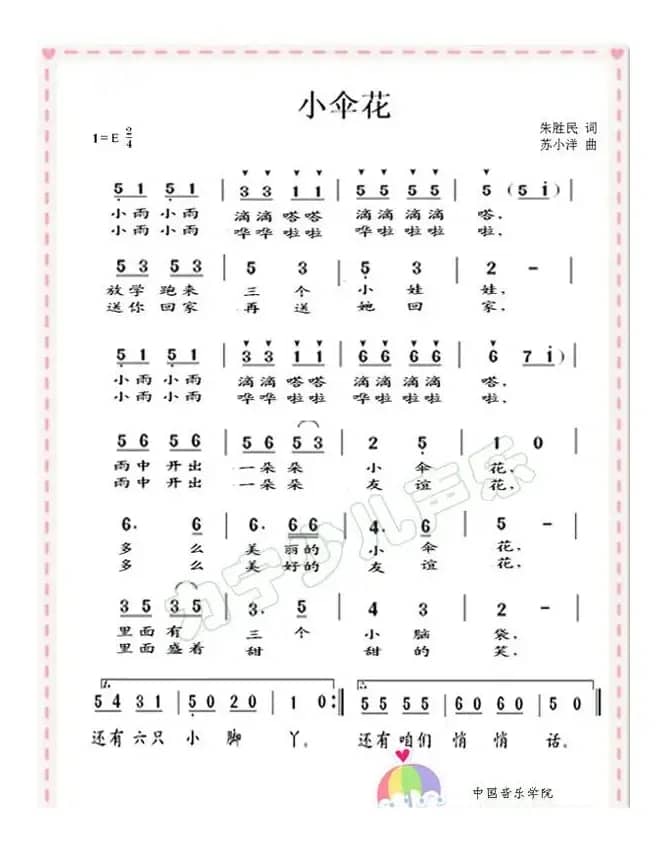 小伞花
1=E 2/4
朱胜民 词
苏小洋 曲
5 1 5 1 | 3 3 1 1 | 5 5 5 5 | 5 (5 i) |
小雨小雨 滴滴嗒嗒 滴滴滴滴 嗒,
小雨小雨 哗哗啦啦 哗哗啦啦 啦,
5 3 5 3 | 5 3 | 5 3 | 2 - |
放学跑来 三个 小娃 娃,
送你回家 再送 她回 家,
5 1 5 1 | 3 3 1 1 | 6 6 6 6 | 6 7 i) |
小雨小雨 滴滴嗒嗒 滴滴滴滴 嗒,
小雨小雨 哗哗啦啦 哗哗啦啦 啦,
5 6 5 6 | 5 6 5 3 | 2 5 | 1 0 |
雨中开出 一朵朵 小伞 花,
雨中开出 一朵朵 友谊 花,
6. 6 | 6. 6 6 | 4. 6 | 5 - |
多么 美丽的 小伞 花,
多么 美好的 友谊 花,
3 5 3 5 | 3. 5 | 4 3 | 2 - |
里面有 三个 小脑 袋,
里面盛着 甜 甜的 笑,
1. 5 4 3 1 | 5 0 2 0 | 1 0 :‖ 2. 5 5 5 5 | 6 0 6 0 | 5 0 ‖
还有六只 小 脚 丫。 还有咱们 悄 悄 话。
力宁少儿声乐
中国音乐学院